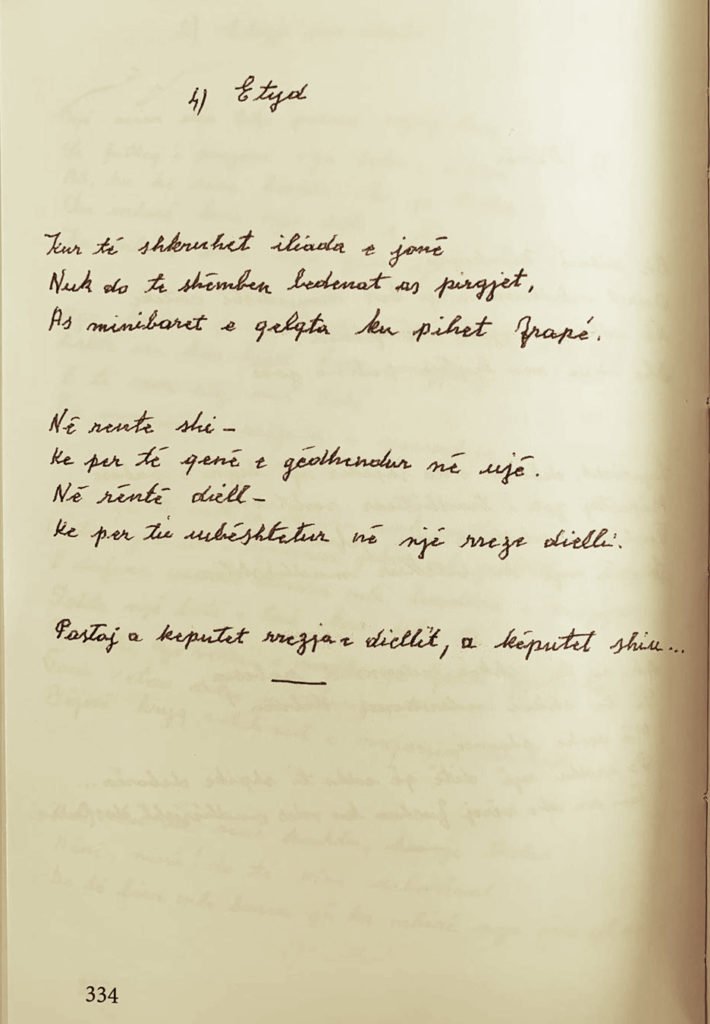 4) Etyd
Kur të shkruhet iliada e jonë
Nuk do te shëmben bedenat as pirgjet,
As minibaret e qelqta ku pihet frapé.
Në rente shi –
Ke per të qenë e gëdhendur në ujë.
Në rëntë diell –
Ke per tu mbështetur në një rreze dielli.
Pastaj a keputet rrezja e diellit, a këputet shiu...
334